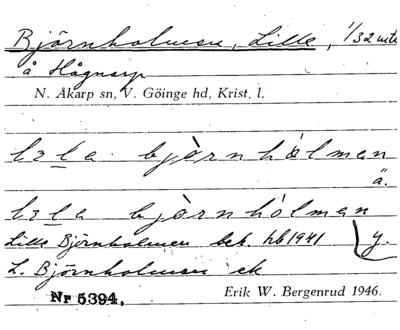 Björnholmen, Lille, 1/32 mtl
å Hågnarp
N. Åkarp sn, V. Göinge hd, Krist. l.
björnhålman
ä.
björnhólman
Lille Björnholmen bet. hb 1941 y.
L. Björnholmen ek
Nr 5394. Erik W. Bergenrud 1946.